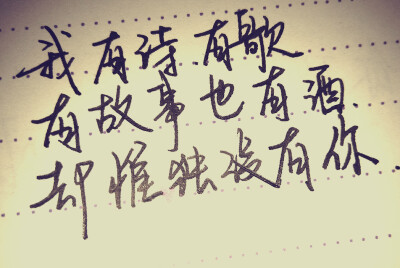 我有诗.有歌.
有故事也有酒.
却惟独没有你.